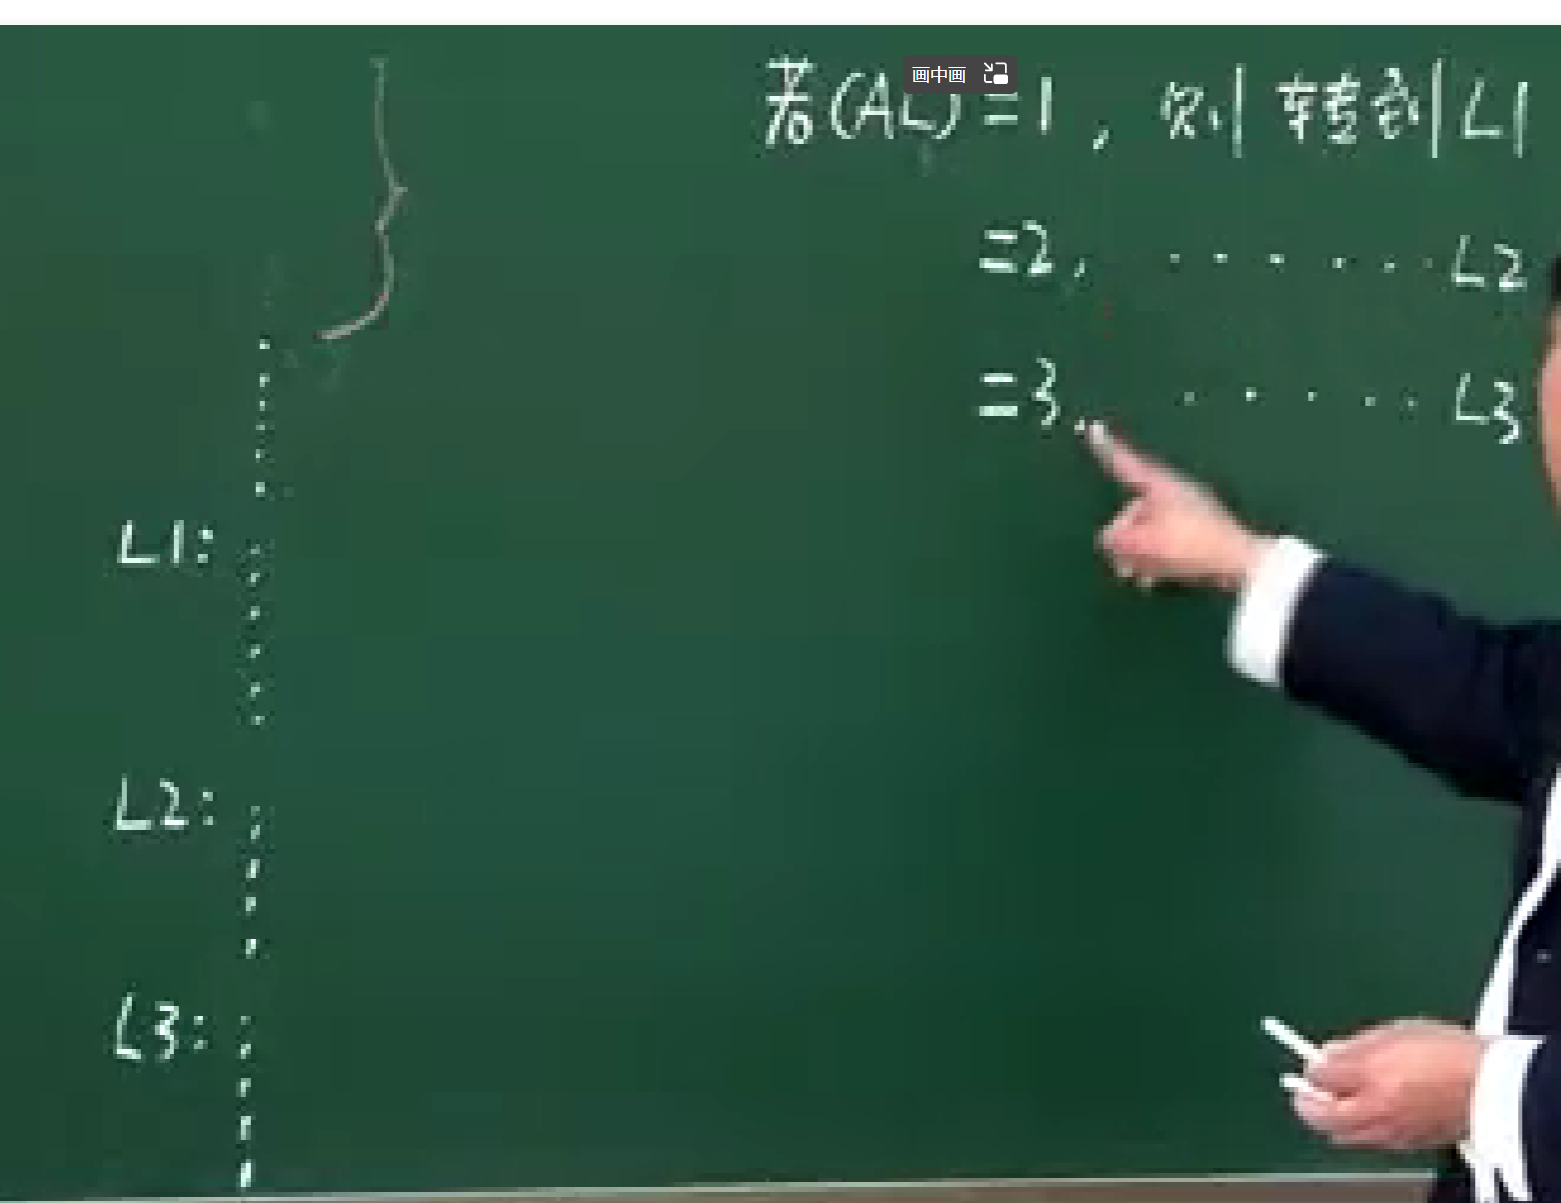 画中画
若(AL)=1, 则转到L1
=2, ...... L2
=3, ..... L3
L1:
L2:
L3: